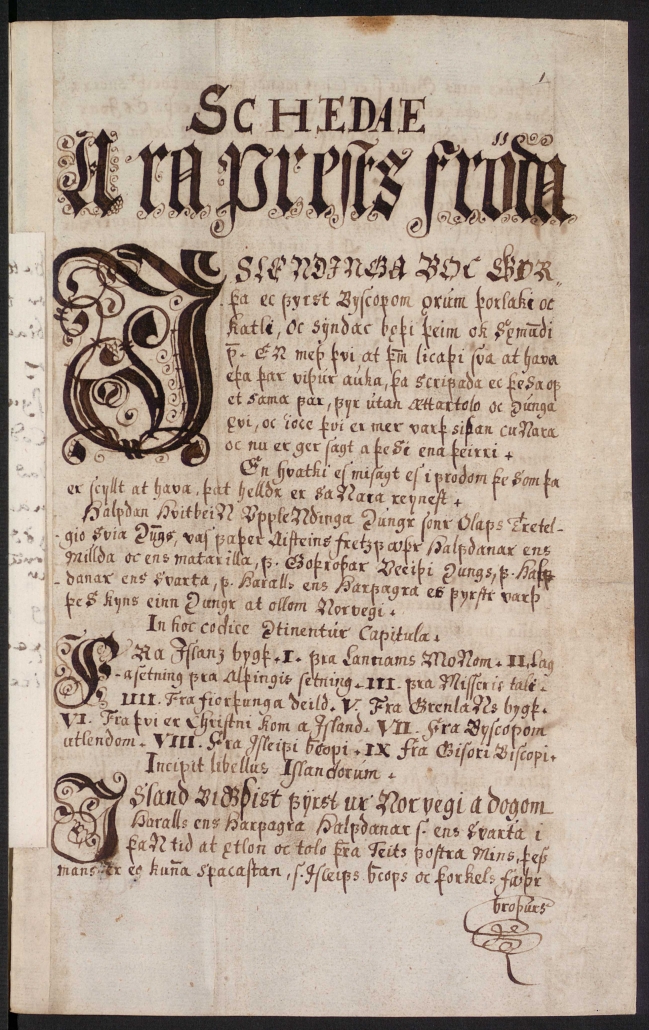 SCHEDAE
Ara prests fröda
ISLENDINGA BOC GIØR
þa ec þyrst Byscopom orum þorlaki oc
katli, Oc syndac bęþi þeim ok Sęmūdi
p̄. EN meþ þvi at þm̄ licaþi sva at hava
eþa þar viþur auka, þa scripada ec þeSa oþ
et sama þar, þyr utan Ættartolo oc Dunga
ęvi, oc ioce þvi er mer varþ siþan cuNara
oc nu er ger sagt a þeSi ena þeirri +
En hvatki es misagt es i prodom þe Som þa
er scyllt at hava, þat helldr er SaNara reynest +
Halpdan HvitbeiN VppleNdinga Dungr sonr Olaps Tretel-
gio Svia Dungs, vas þaþer Aisteins fretz þaþr Halpdanar ens
Millda oc ens matarilla, þ. Goþroþar Veciþi Dungs, þ. Halp
danar ens Svarta, þ. Haralls ens Harpagra es þyrstr varþ
þeS kyns einn Dungr at ollom Norvegi +
In hoc codice Dtinentur Capitula +
FRa Islanz bygþ + I + þra Lannams MoNom + II, Lag
asetning þra Alþingis setning + III + þra Misseris tali +
IIII. Fra fiorþunga deild + V. Fra GrenlaNs bygþ +
VI. Fra þvi er Christni kom a Island + VII. Fra Byscopom
utlendom + VIII. Fra Isleiþi b̄copi + IX Fra Gisori Biscopi +
Incipit libellus Islandorum +
ISland BIGþist þyrst ur Norvegi a dogom
Haralls ens Harpagra Halpdanar s. ens Svarta i
þaN tid at ętlon oc tolo þra Teits þostra Mins, þes
mans er eg kun̄a Spacastan, s. Isleiþs b̄cops oc þorkels faþr
broþurs